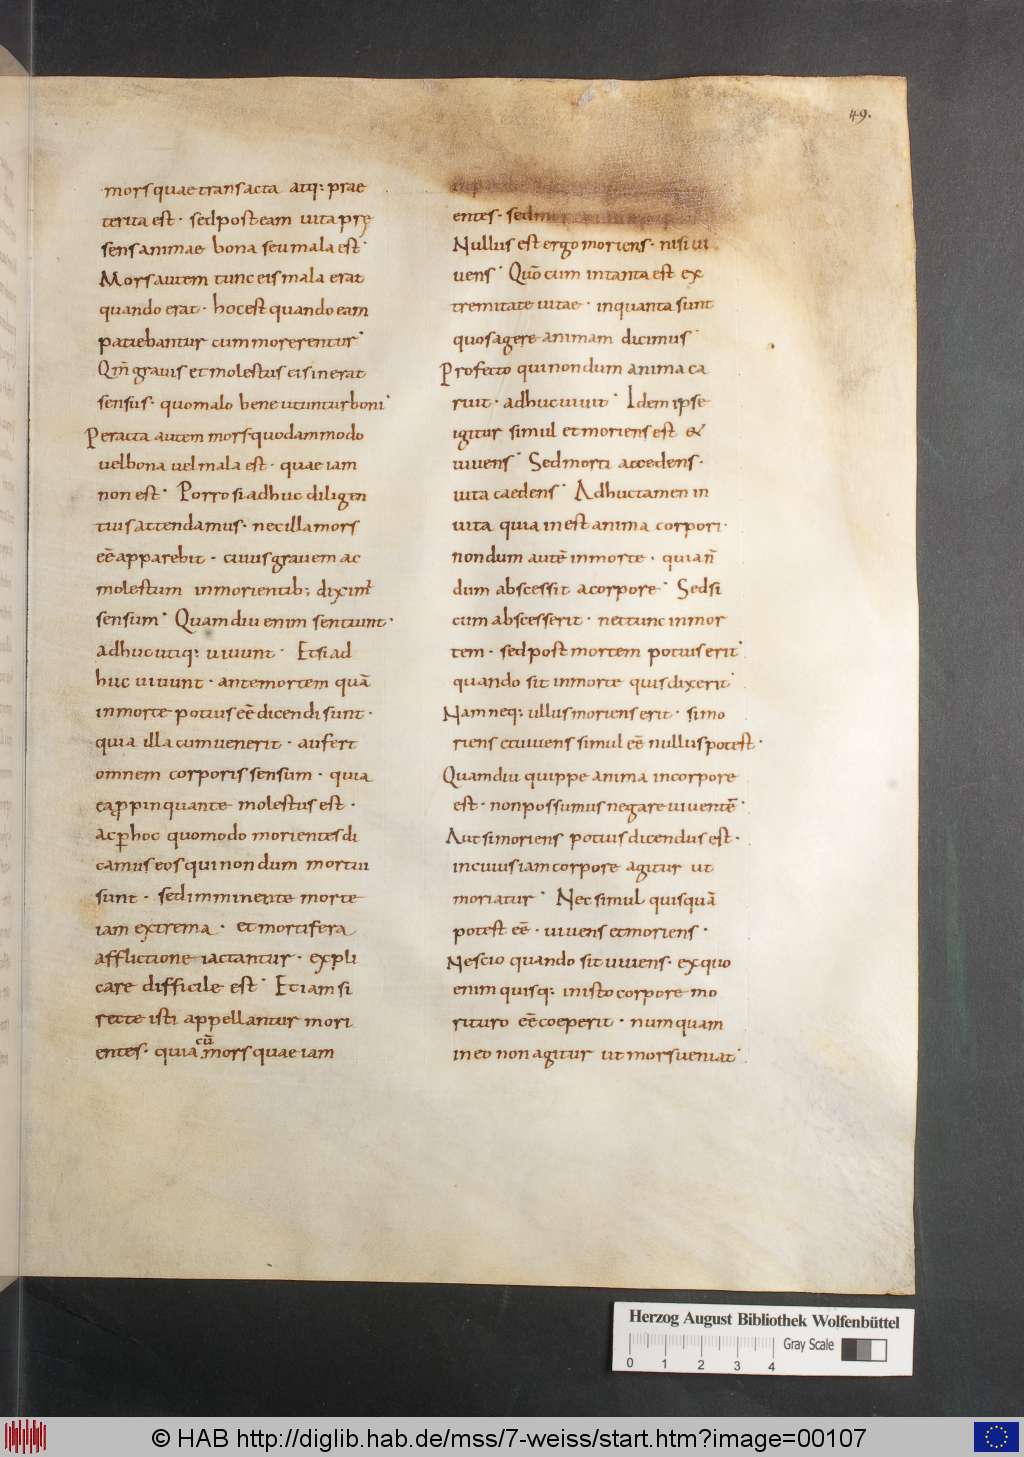 49.
mors quae transacta atq: prae
terita est · sed post eam uita prę
sens animae bona seu mala est·
Mors autem tunc eis mala erat
quando erat · hoc est quando eam
patiebantur cum morerentur·
Qm̄ grauis et molestus eis inerat
sensus · quo malo bene utuntur boni·
Peracta autem mors quodammodo
uel bona uel mala est · quae iam
non est· Porro si adhuc diligen
tius attendamus · nec illa mors
eē apparebit · cuius grauem ac
molestum in morientib; diximꝰ
sensum· Quamdiu enim sentiunt ·
adhuc utiq: uiuunt · Et si ad
huc uiuunt · ante mortem quā
in morte potius eē dicendi sunt ·
quia illa cum uenerit · aufert
omnem corporis sensum · quia
ea ꝓpinquante molestus est ·
ac ꝑ hoc quomodo morientes di
camus eos qui nondum mortui
sunt · sed imminente morte
iam extrema · et mortifera
afflictione iactantur · expli
care difficile est· Etiam si
recte isti appellantur mori
entes · quia cū mors quae iam
entes · sed
Nullus est ergo moriens · nisi ui
uens· Qūo cum in tanta est ex
tremitate uitae · in quanta sunt
quos agere animam dicimus·
Profecto qui nondum anima ca
ruit · adhuc uiuit · Idem ipse
igitur simul et moriens est &
uiuens· Sed morti accedens ·
uita caedens· Adhuc tamen in
uita quia inest anima corpori ·
nondum autē in morte · quia n̄
dum abscessit a corpore· Sed si
cum abscesserit · nec tunc in mor
tem · sed post mortem potius erit·
quando sit in morte quis dixerit·
Nam neq: ullus moriens erit · si mo
riens et uiuens simul eē nullus potest ·
Quamdiu quippe anima in corpore
est · non possumus negare uiuentē·
Aut si moriens potius dicendus est ·
in cuius iam corpore agitur ut
moriatur· Nec simul quisquā
potest eē · uiuens et moriens ·
Nescio quando sit uiuens · ex quo
enim quisq: in isto corpore mo
rituro eē coeperit · numquam
in eo non agitur ut mors ueniat·
Herzog August Bibliothek Wolfenbüttel
Gray Scale
0 1 2 3 4
© HAB http://diglib.hab.de/mss/7-weiss/start.htm?image=00107